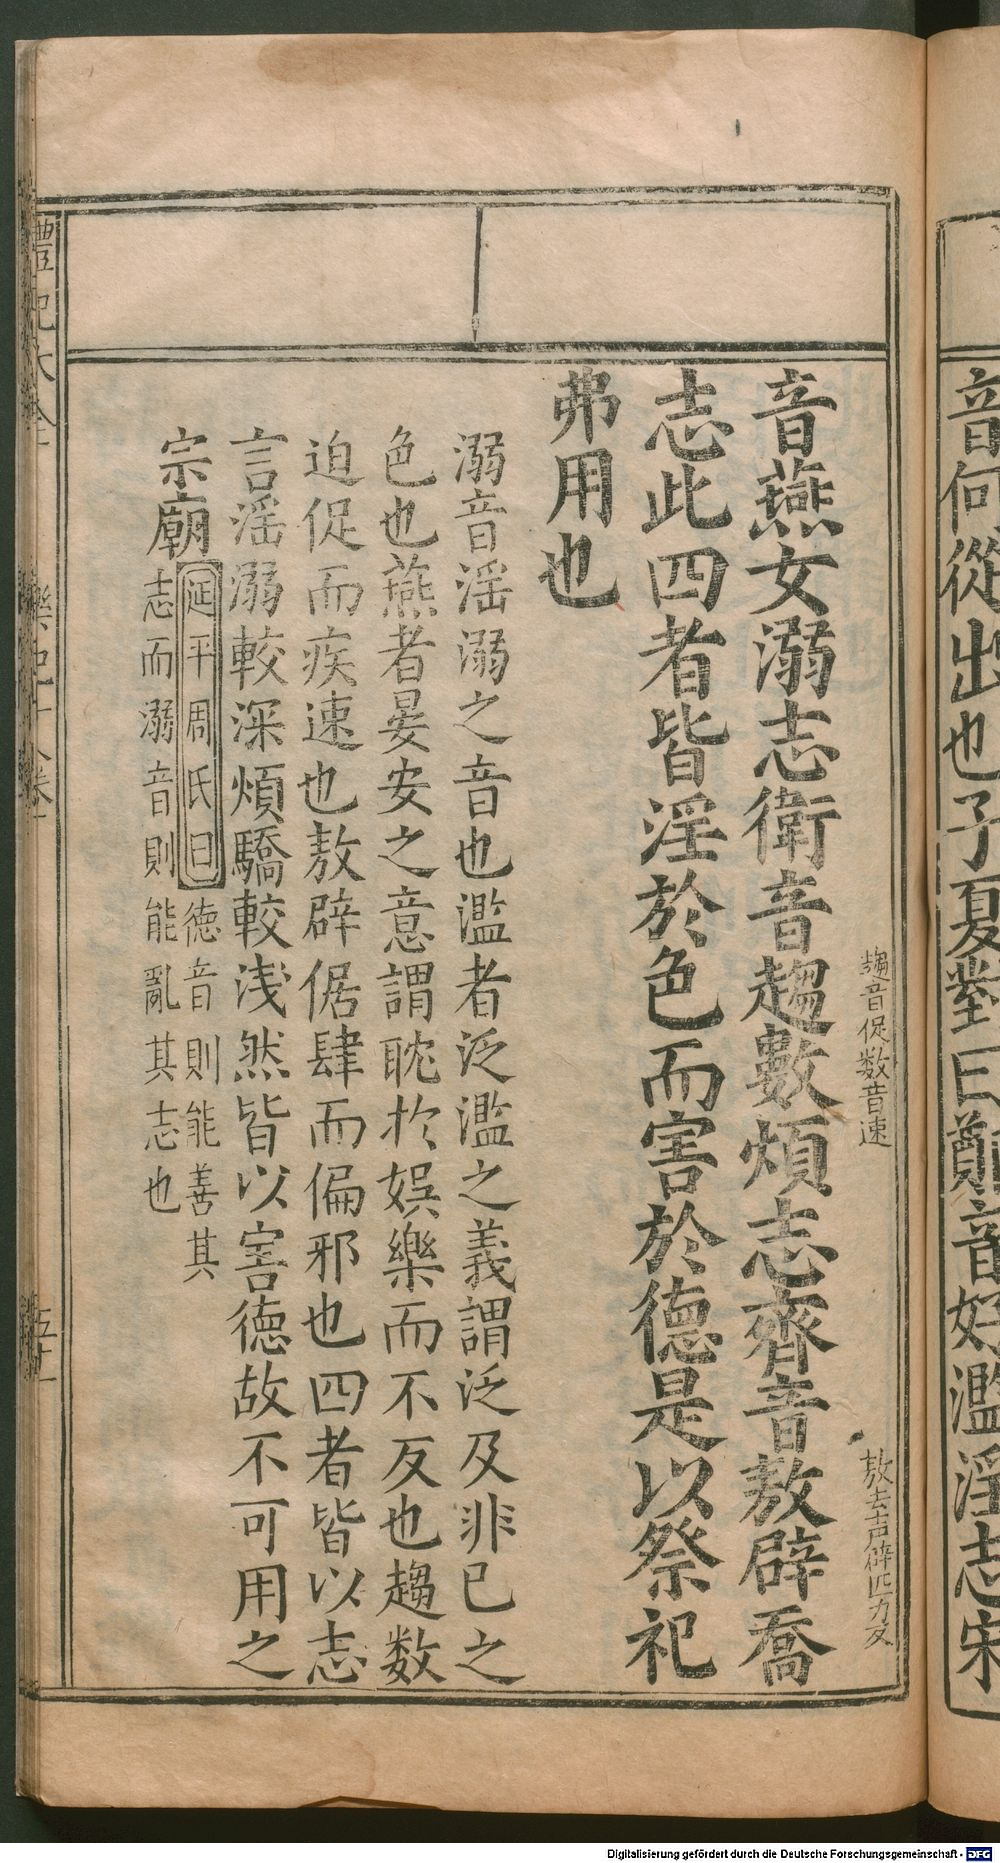 音何從出也子夏對曰鄭音好濫淫志宋
音燕女溺志衛音趨數煩志齊音敖辟喬
趨音促数音速
敖去声辟匹力反
志此四者皆淫於色而害於德是以祭祀
弗用也
溺音淫溺之音也濫者泛濫之義謂泛及非已之
色也燕者晏安之意謂耽於娯樂而不反也趨数
迫促而疾速也敖辟倨肆而偏邪也四者皆以志
言淫溺較深煩驕較浅然皆以害德故不可用之
宗廟
延平周氏曰德音則能善其
志而溺音則能亂其志也
禮記大全
樂記十八卷
五十一
Digitalisierung gefördert durch die Deutsche Forschungsgemeinschaft - DFG